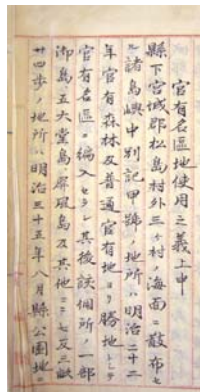 官有名區地使用之義上申
縣下宮城郡松島村外三ヶ村ノ海面ニ散布セ
ル諸島嶼中別記甲號ノ地所ハ明治三十二
年官有森林及普通官有地ヨリ勝地トシテ
官有名區ニ編入セラレ其後該個所ノ一部
御島、五大堂島、屏風島及其他ニテ七反三畝
廿四歩ノ地所ハ明治三十五年八月縣公園地ニ